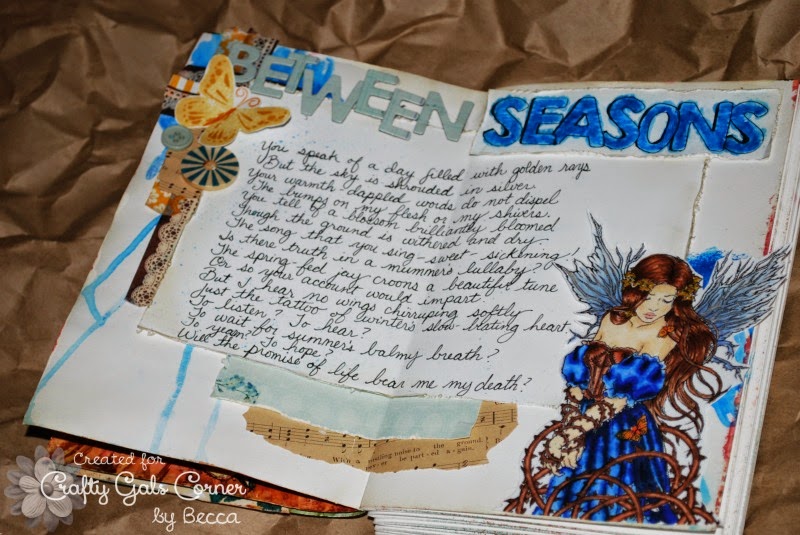 BETWEEN
SEASONS
You speak of a day filled with golden rays
But the sky is shrouded in silver.
Your warmth dappled words do not dispel
The bumps on my flesh or my shivers.
You tell of a blossom brilliantly bloomed
Though the ground is withered and dry.
The song that you sing - sweet, sickening!
Is there truth in a mummer's lullaby?
The spring-fed jay croons a beautiful tune
Or so your account would impart.
But I hear no wings chirruping softly
Just the tattoo of winter's slow-blating heart
To listen? To hear?
To wait for summer's balmy breath?
To yearn? To hope?
Will the promise of life bear me my death?
to the ground,
be part-ed a-gain,
Created for
Crafty Gals Corner
by Becca